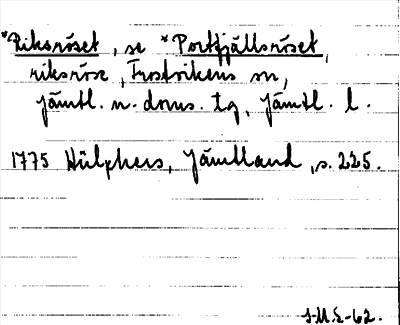 *Riksröset, se *Portfjällsröset,
riksröse, Frostvikens sn,
Jämtl. n. doms. tg, Jämtl. l.
1775 Hülphers, Jämtland, s. 225.
J-M.E-62.